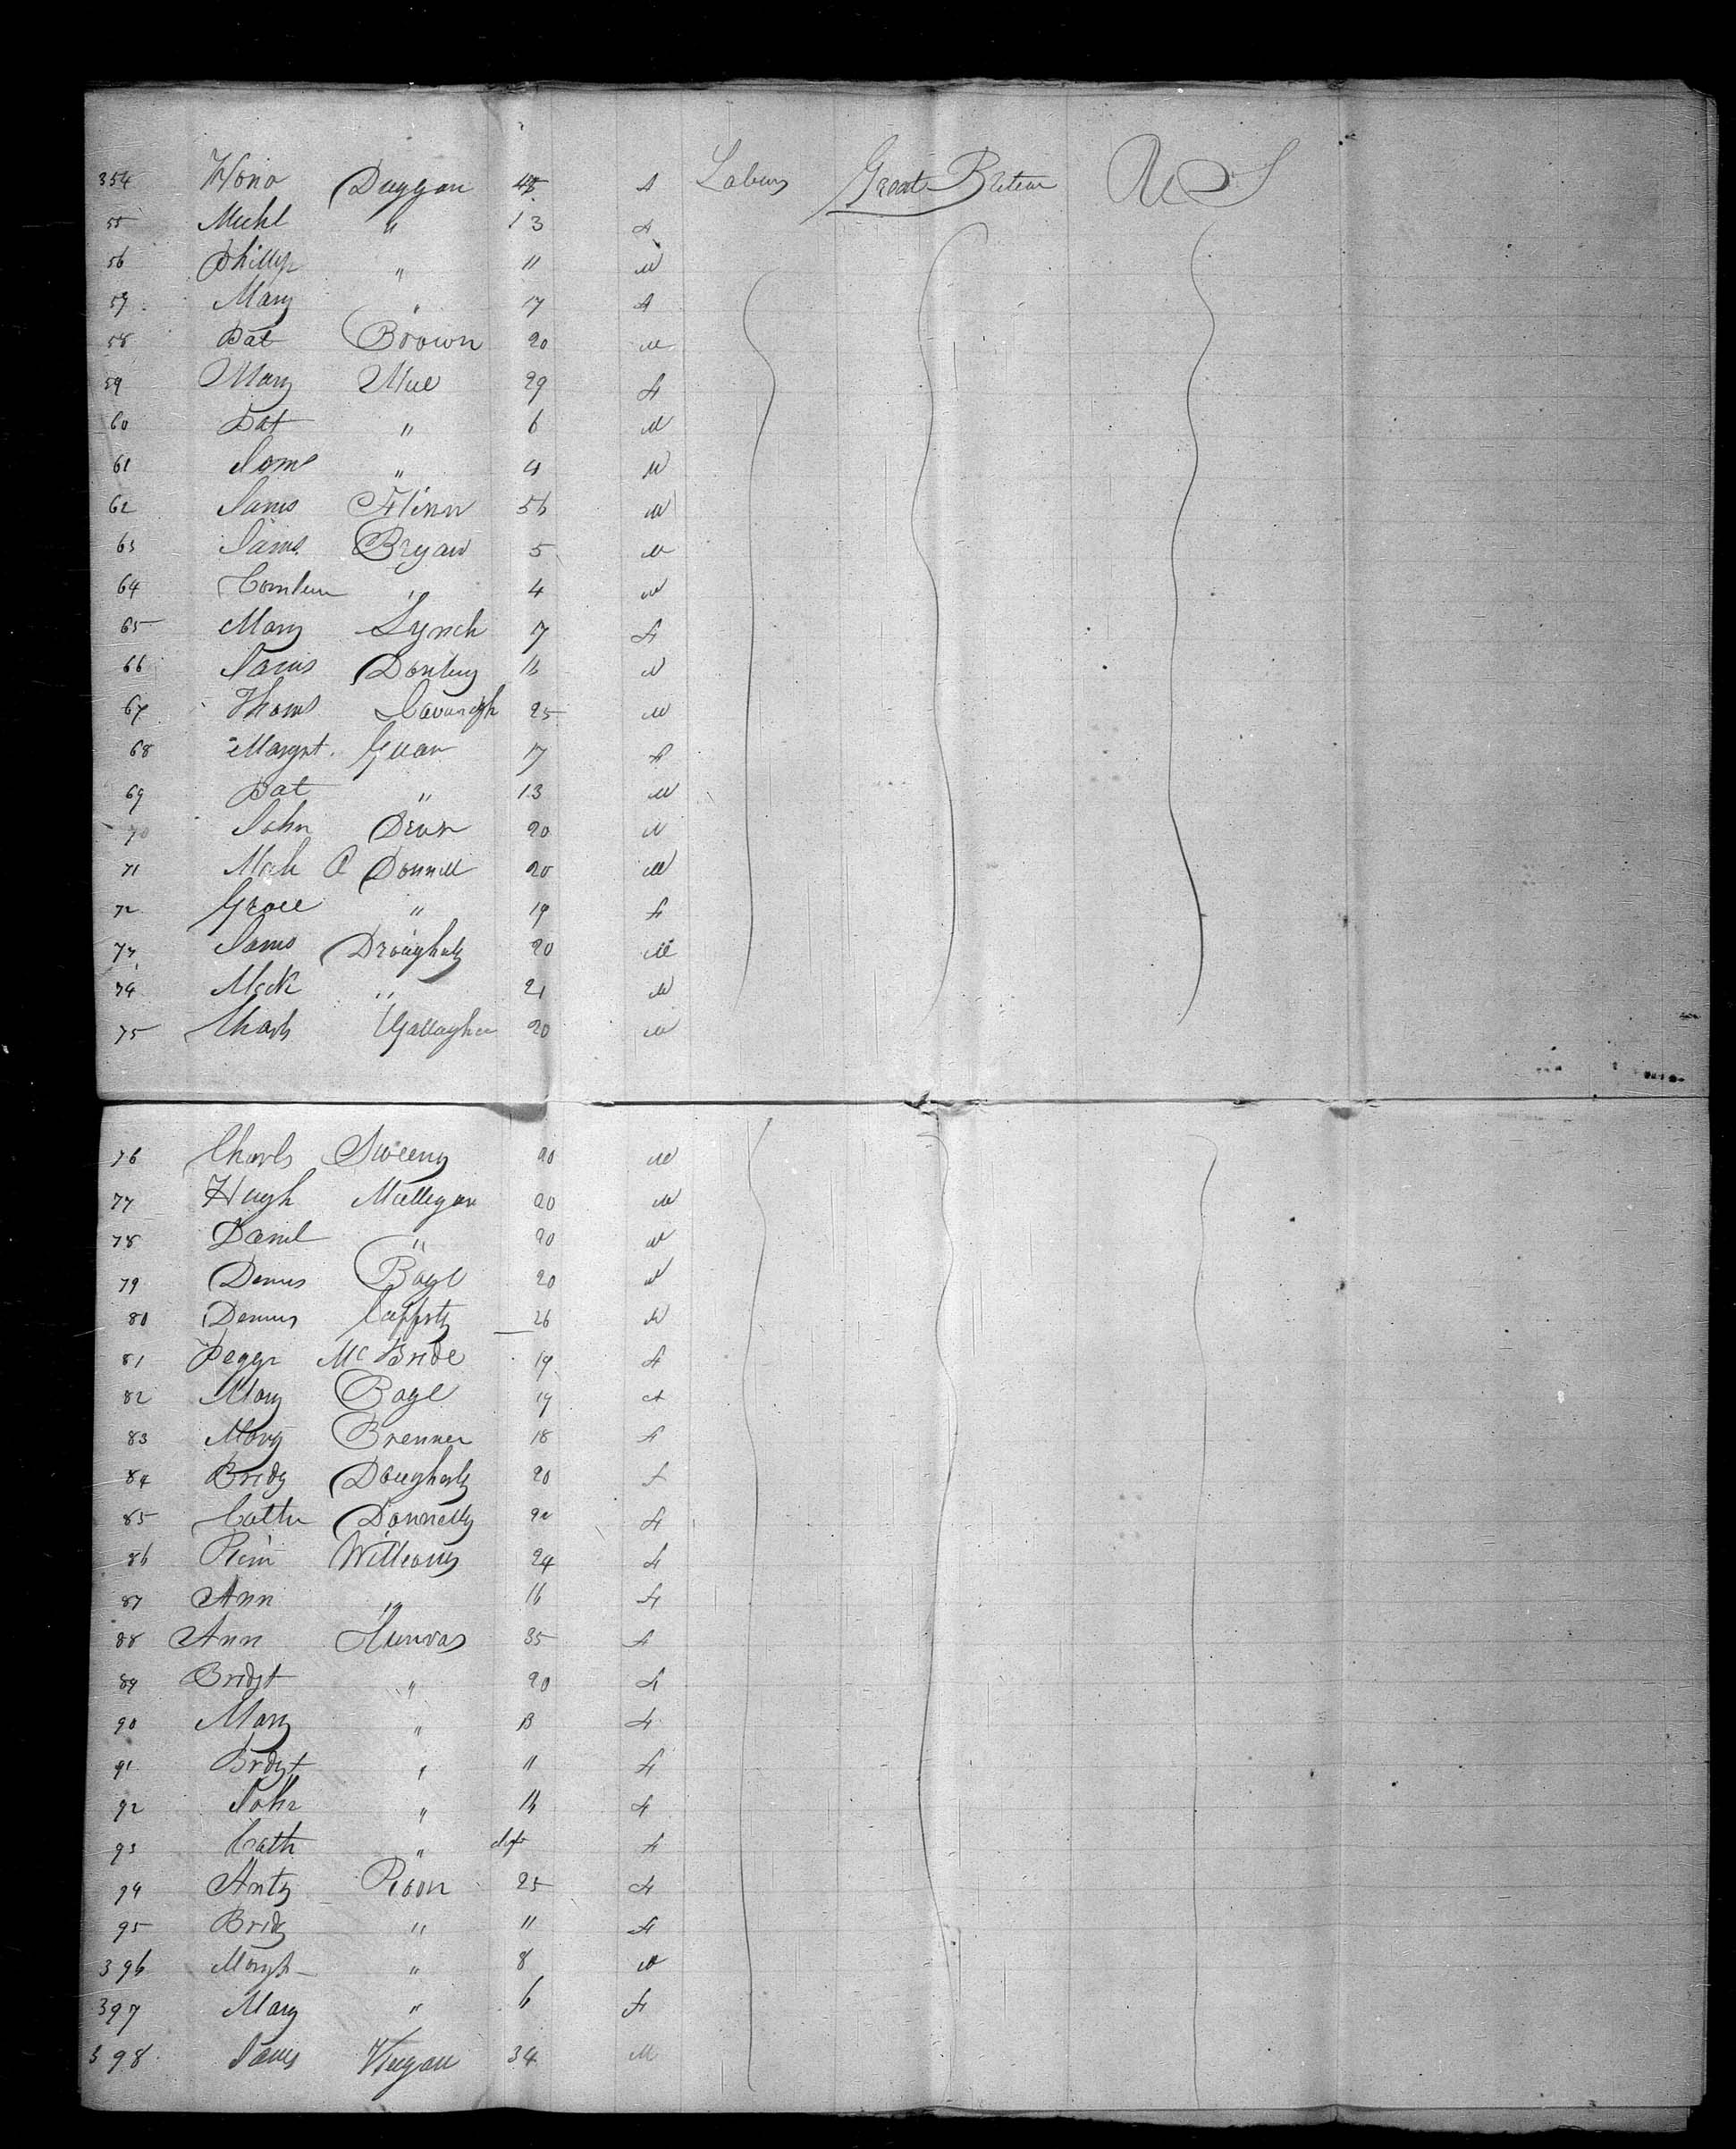 354 Hono Duggan 45 F Labour Great Britain U S
55 Michl " 13 F
56 Phillip " 11 M
57 Mary " 17 F
58 Pat Brown 20 M
59 Mary Mee 29 F
60 Pat " 6 M
61 Jams " 4 M
62 Jams Flinn 56 M
63 Jams Bryan 5 M
64 " 4 M
65 Mary Lynch 7 F
66 Jams 16 M
67 Thoms Cavanagh 25 M
68 Margrt 17 F
69 Pat " 13 M
70 John 20 M
71 Mich O Donnell 20 M
72 Grace " 19 F
73 Jams Droughaty 20 M
74 Mick " 21 M
75 Charls Gallagher 20 M
76 Charls Sweeny 20 M
77 Hugh Mulligan 20 M
78 Danil " 20 M
79 Dennis Boyl 20 M
80 Dennis 26 M
81 Peggy McBride 19 F
82 Mary Boyl 19 F
83 Mary Brenner 18 F
84 Bridg Dougharty 20 F
85 Cathr Donnelly 20 F
86 Williams 24 F
87 Ann " 16 F
88 Ann 35 F
89 Bridgt " 20 F
90 Mary " 13 F
91 Bridgt " 11 F
92 John " 16 F
93 Cath " F
94 Anty 25 F
95 Bridg " 11 F
396 " 8 M
397 Mary " 6 F
398 Jams 34 M